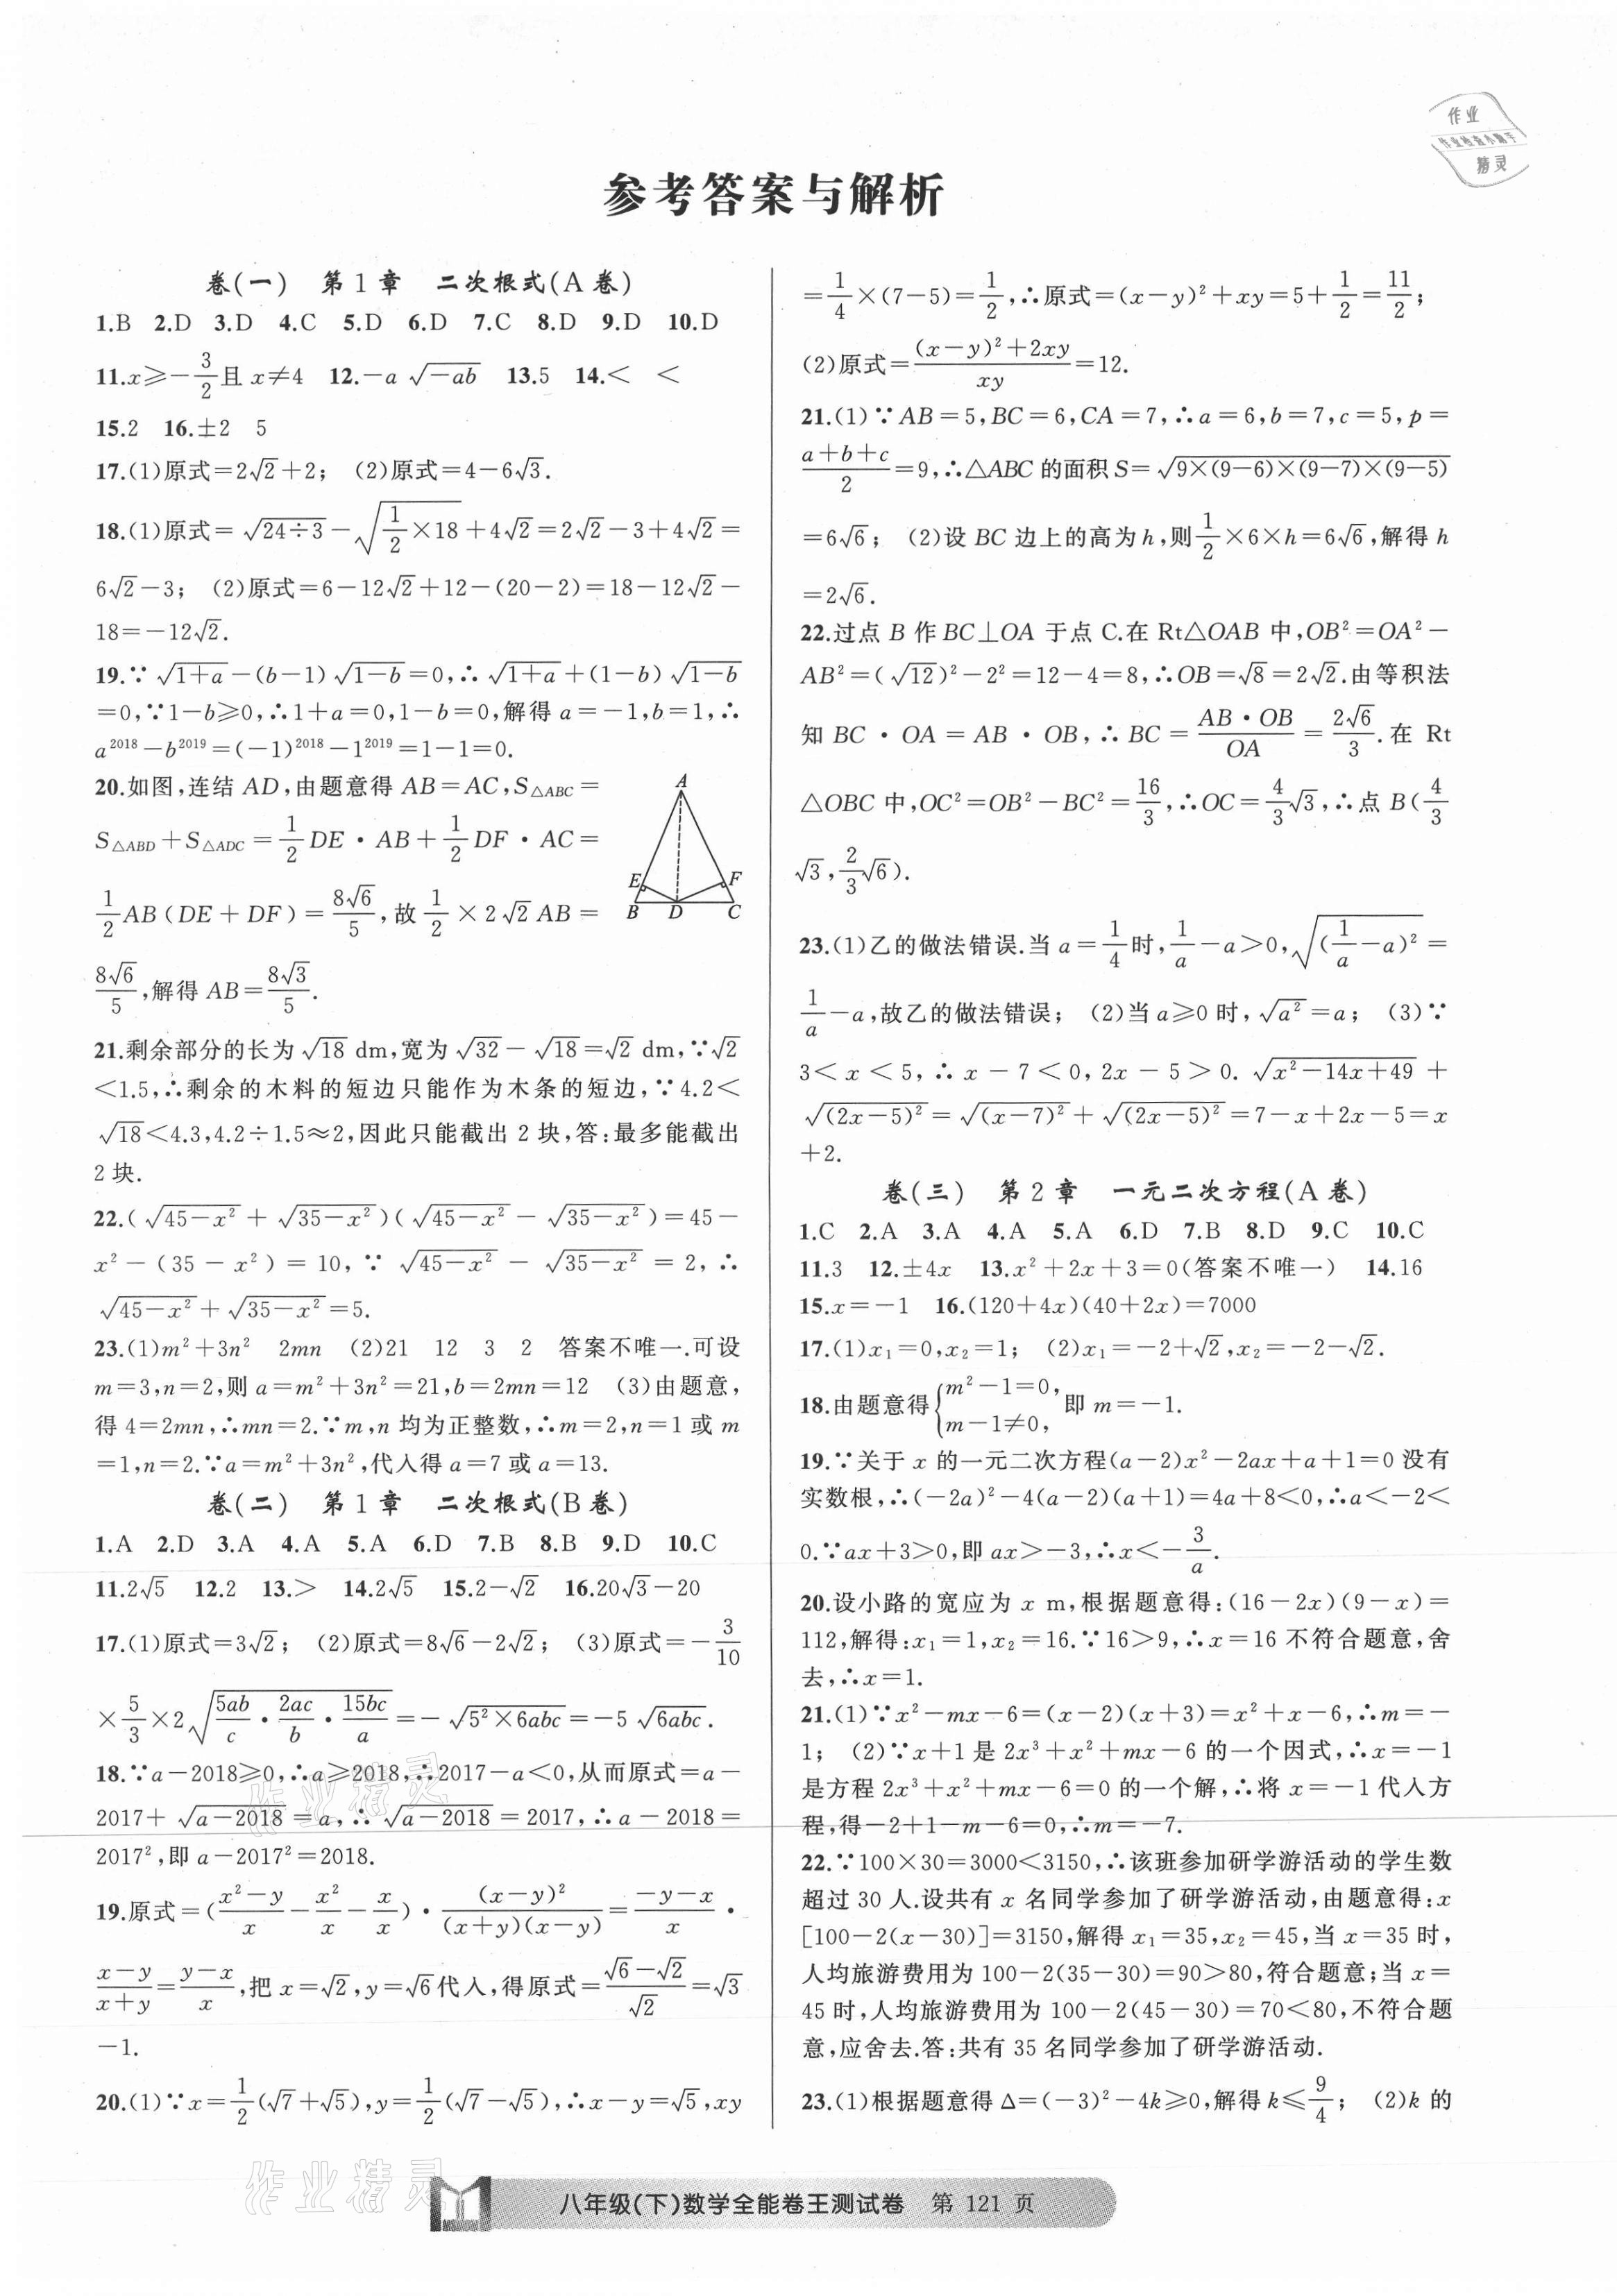 作业
作业检查小助手
精灵
参考答案与解析
卷(一) 第1章 二次根式(A卷)
1.B 2.D 3.D 4.C 5.D 6.D 7.C 8.D 9.D 10.D
11.x≥-3/2且x≠4 12.-a√(-ab) 13.5 14.< <
15.2 16.±2 5
17.(1)原式=2√2+2; (2)原式=4-6√3.
18.(1)原式=√(24÷3)-√(1/2×18)+4√2=2√2-3+4√2=
6√2-3; (2)原式=6-12√2+12-(20-2)=18-12√2-
18=-12√2.
19.∵√(1+a)-(b-1)√(1-b)=0,∴√(1+a)+(1-b)√(1-b)
=0,∵1-b≥0,∴1+a=0,1-b=0,解得a=-1,b=1,∴
a²⁰¹⁸-b²⁰¹⁹=(-1)²⁰¹⁸-1²⁰¹⁹=1-1=0.
20.如图,连结AD,由题意得AB=AC,S△ABC=
S△ABD+S△ADC=1/2DE·AB+1/2DF·AC=
1/2AB(DE+DF)=8√6/5,故1/2×2√2AB=
8√6/5,解得AB=8√3/5.
A
E
F
B D C
21.剩余部分的长为√18 dm,宽为√32-√18=√2 dm,∵√2
<1.5,∴剩余的木料的短边只能作为木条的短边,∵4.2<
√18<4.3,4.2÷1.5≈2,因此只能截出2块,答:最多能截出
2块.
22.(√(45-x²)+√(35-x²))(√(45-x²)-√(35-x²))=45-
x²-(35-x²)=10,∵√(45-x²)-√(35-x²)=2,∴
√(45-x²)+√(35-x²)=5.
23.(1)m²+3n² 2mn (2)21 12 3 2 答案不唯一.可设
m=3,n=2,则a=m²+3n²=21,b=2mn=12 (3)由题意,
得4=2mn,∴mn=2.∵m,n均为正整数,∴m=2,n=1或m
=1,n=2.∵a=m²+3n²,代入得a=7或a=13.
卷(二) 第1章 二次根式(B卷)
1.A 2.D 3.A 4.A 5.A 6.D 7.B 8.B 9.D 10.C
11.2√5 12.2 13.> 14.2√5 15.2-√2 16.20√3-20
17.(1)原式=3√2; (2)原式=8√6-2√2; (3)原式=-3/10
×5/3×2√(5ab/c·2ac/b·15bc/a)=-√(5²×6abc)=-5√(6abc).
18.∵a-2018≥0,∴a≥2018,∴2017-a<0,从而原式=a-
2017+√(a-2018)=a,∴√(a-2018)=2017,∴a-2018=
2017²,即a-2017²=2018.
19.原式=((x²-y)/x-x²/x-x/x)·(x-y)²/((x+y)(x-y))=(-y-x)/x·
(x-y)/(x+y)=(y-x)/x,把x=√2,y=√6代入,得原式=(√6-√2)/√2=√3
-1.
20.(1)∵x=1/2(√7+√5),y=1/2(√7-√5),∴x-y=√5,xy
=1/4×(7-5)=1/2,∴原式=(x-y)²+xy=5+1/2=11/2;
(2)原式=((x-y)²+2xy)/xy=12.
21.(1)∵AB=5,BC=6,CA=7,∴a=6,b=7,c=5,p=
(a+b+c)/2=9,∴△ABC的面积S=√(9×(9-6)×(9-7)×(9-5))
=6√6; (2)设BC边上的高为h,则1/2×6×h=6√6,解得h
=2√6.
22.过点B作BC⊥OA于点C.在Rt△OAB中,OB²=OA²-
AB²=(√12)²-2²=12-4=8,∴OB=√8=2√2.由等积法
知BC·OA=AB·OB,∴BC=AB·OB/OA=2√6/3.在Rt
△OBC中,OC²=OB²-BC²=16/3,∴OC=4/3√3,∴点B(4/3
√3,2/3√6).
23.(1)乙的做法错误.当a=1/4时,1/a-a>0,√((1/a-a)²)=
1/a-a,故乙的做法错误; (2)当a≥0时,√(a²)=a; (3)∵
3<x<5,∴x-7<0,2x-5>0.√(x²-14x+49)+
√((2x-5)²)=√((x-7)²)+√((2x-5)²)=7-x+2x-5=x
+2.
卷(三) 第2章 一元二次方程(A卷)
1.C 2.A 3.A 4.A 5.A 6.D 7.B 8.D 9.C 10.C
11.3 12.±4x 13.x²+2x+3=0(答案不唯一) 14.16
15.x=-1 16.(120+4x)(40+2x)=7000
17.(1)x₁=0,x₂=1; (2)x₁=-2+√2,x₂=-2-√2.
18.由题意得{m²-1=0, m-1≠0, 即m=-1.
19.∵关于x的一元二次方程(a-2)x²-2ax+a+1=0没有
实数根,∴(-2a)²-4(a-2)(a+1)=4a+8<0,∴a<-2<
0.∵ax+3>0,即ax>-3,∴x<-3/a.
20.设小路的宽应为x m,根据题意得:(16-2x)(9-x)=
112,解得:x₁=1,x₂=16.∵16>9,∴x=16不符合题意,舍
去,∴x=1.
21.(1)∵x²-mx-6=(x-2)(x+3)=x²+x-6,∴m=-
1; (2)∵x+1是2x³+x²+mx-6的一个因式,∴x=-1
是方程2x³+x²+mx-6=0的一个解,∴将x=-1代入方
程,得-2+1-m-6=0,∴m=-7.
22.∵100×30=3000<3150,∴该班参加研学游活动的学生数
超过30人.设共有x名同学参加了研学游活动,由题意得:x
[100-2(x-30)]=3150,解得x₁=35,x₂=45,当x=35时,
人均旅游费用为100-2(35-30)=90>80,符合题意;当x=
45时,人均旅游费用为100-2(45-30)=70<80,不符合题
意,应舍去.答:共有35名同学参加了研学游活动.
23.(1)根据题意得Δ=(-3)²-4k≥0,解得k≤9/4; (2)k的
作业精灵
作业精灵
八年级(下)数学全能卷王测试卷 第 121 页